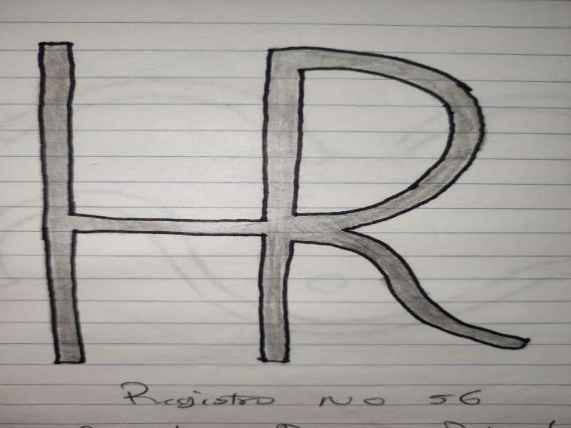 HR
Registro No 56